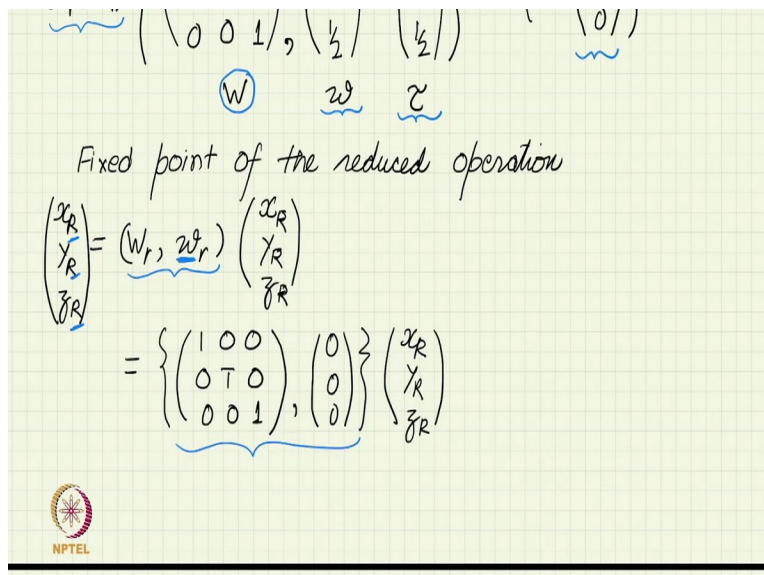 0 0 1 , 1/2 1/2 0
W w τ
Fixed point of the reduced operation
(x_R y_R z_R) = (W_r, w_r) (x_R y_R z_R)
= { (1 0 0
0 1̄ 0
0 0 1) , (0 0 0) } (x_R y_R z_R)
NPTEL